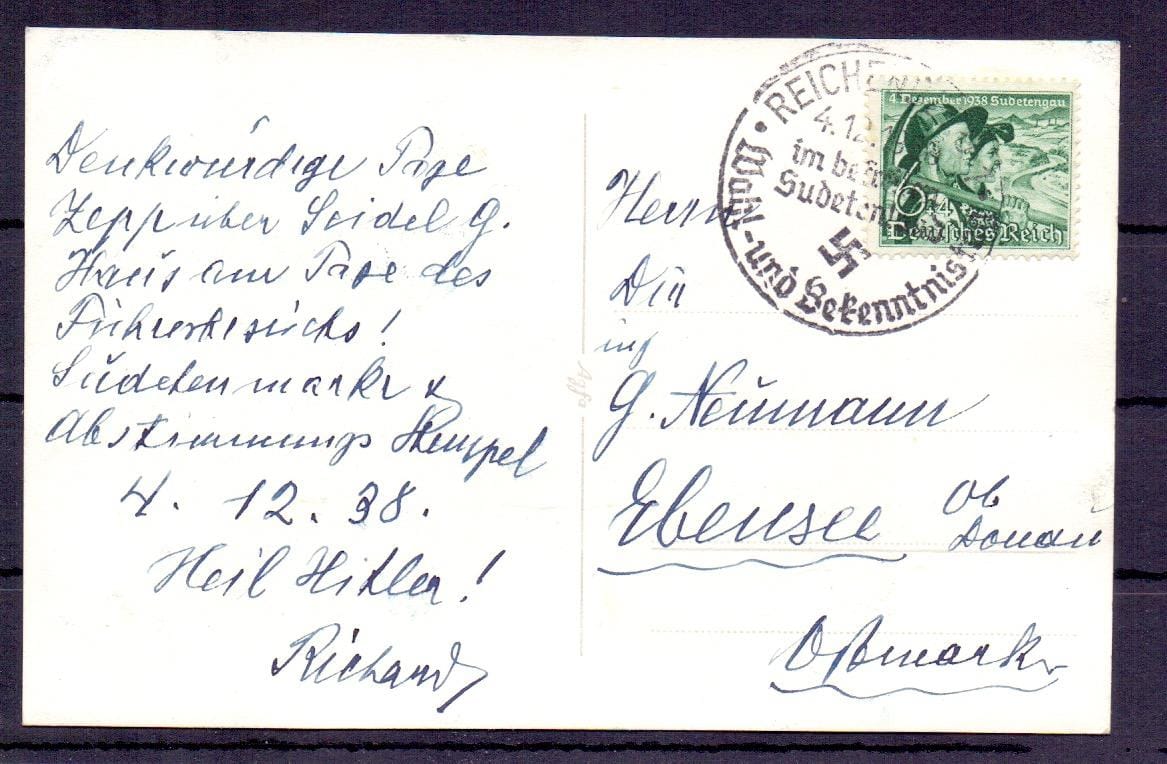 Denkwürdige Tage
Zepp über Seidel G.
Haus am Tage des
Führerbesuchs!
Sudetenmarke &
Abstimmungs Stempel
4. 12. 38.
Heil Hitler!
Richard
Agfa
REICHEN
4.12.
im be
Sudeten
Wahl- und Bekenntnis
4. Dezember 1938 Sudetengau
6+4
Deutsches Reich
Herrn
Dir
ing
G. Neumann
Ebensee Ob
Donau
Ostmark